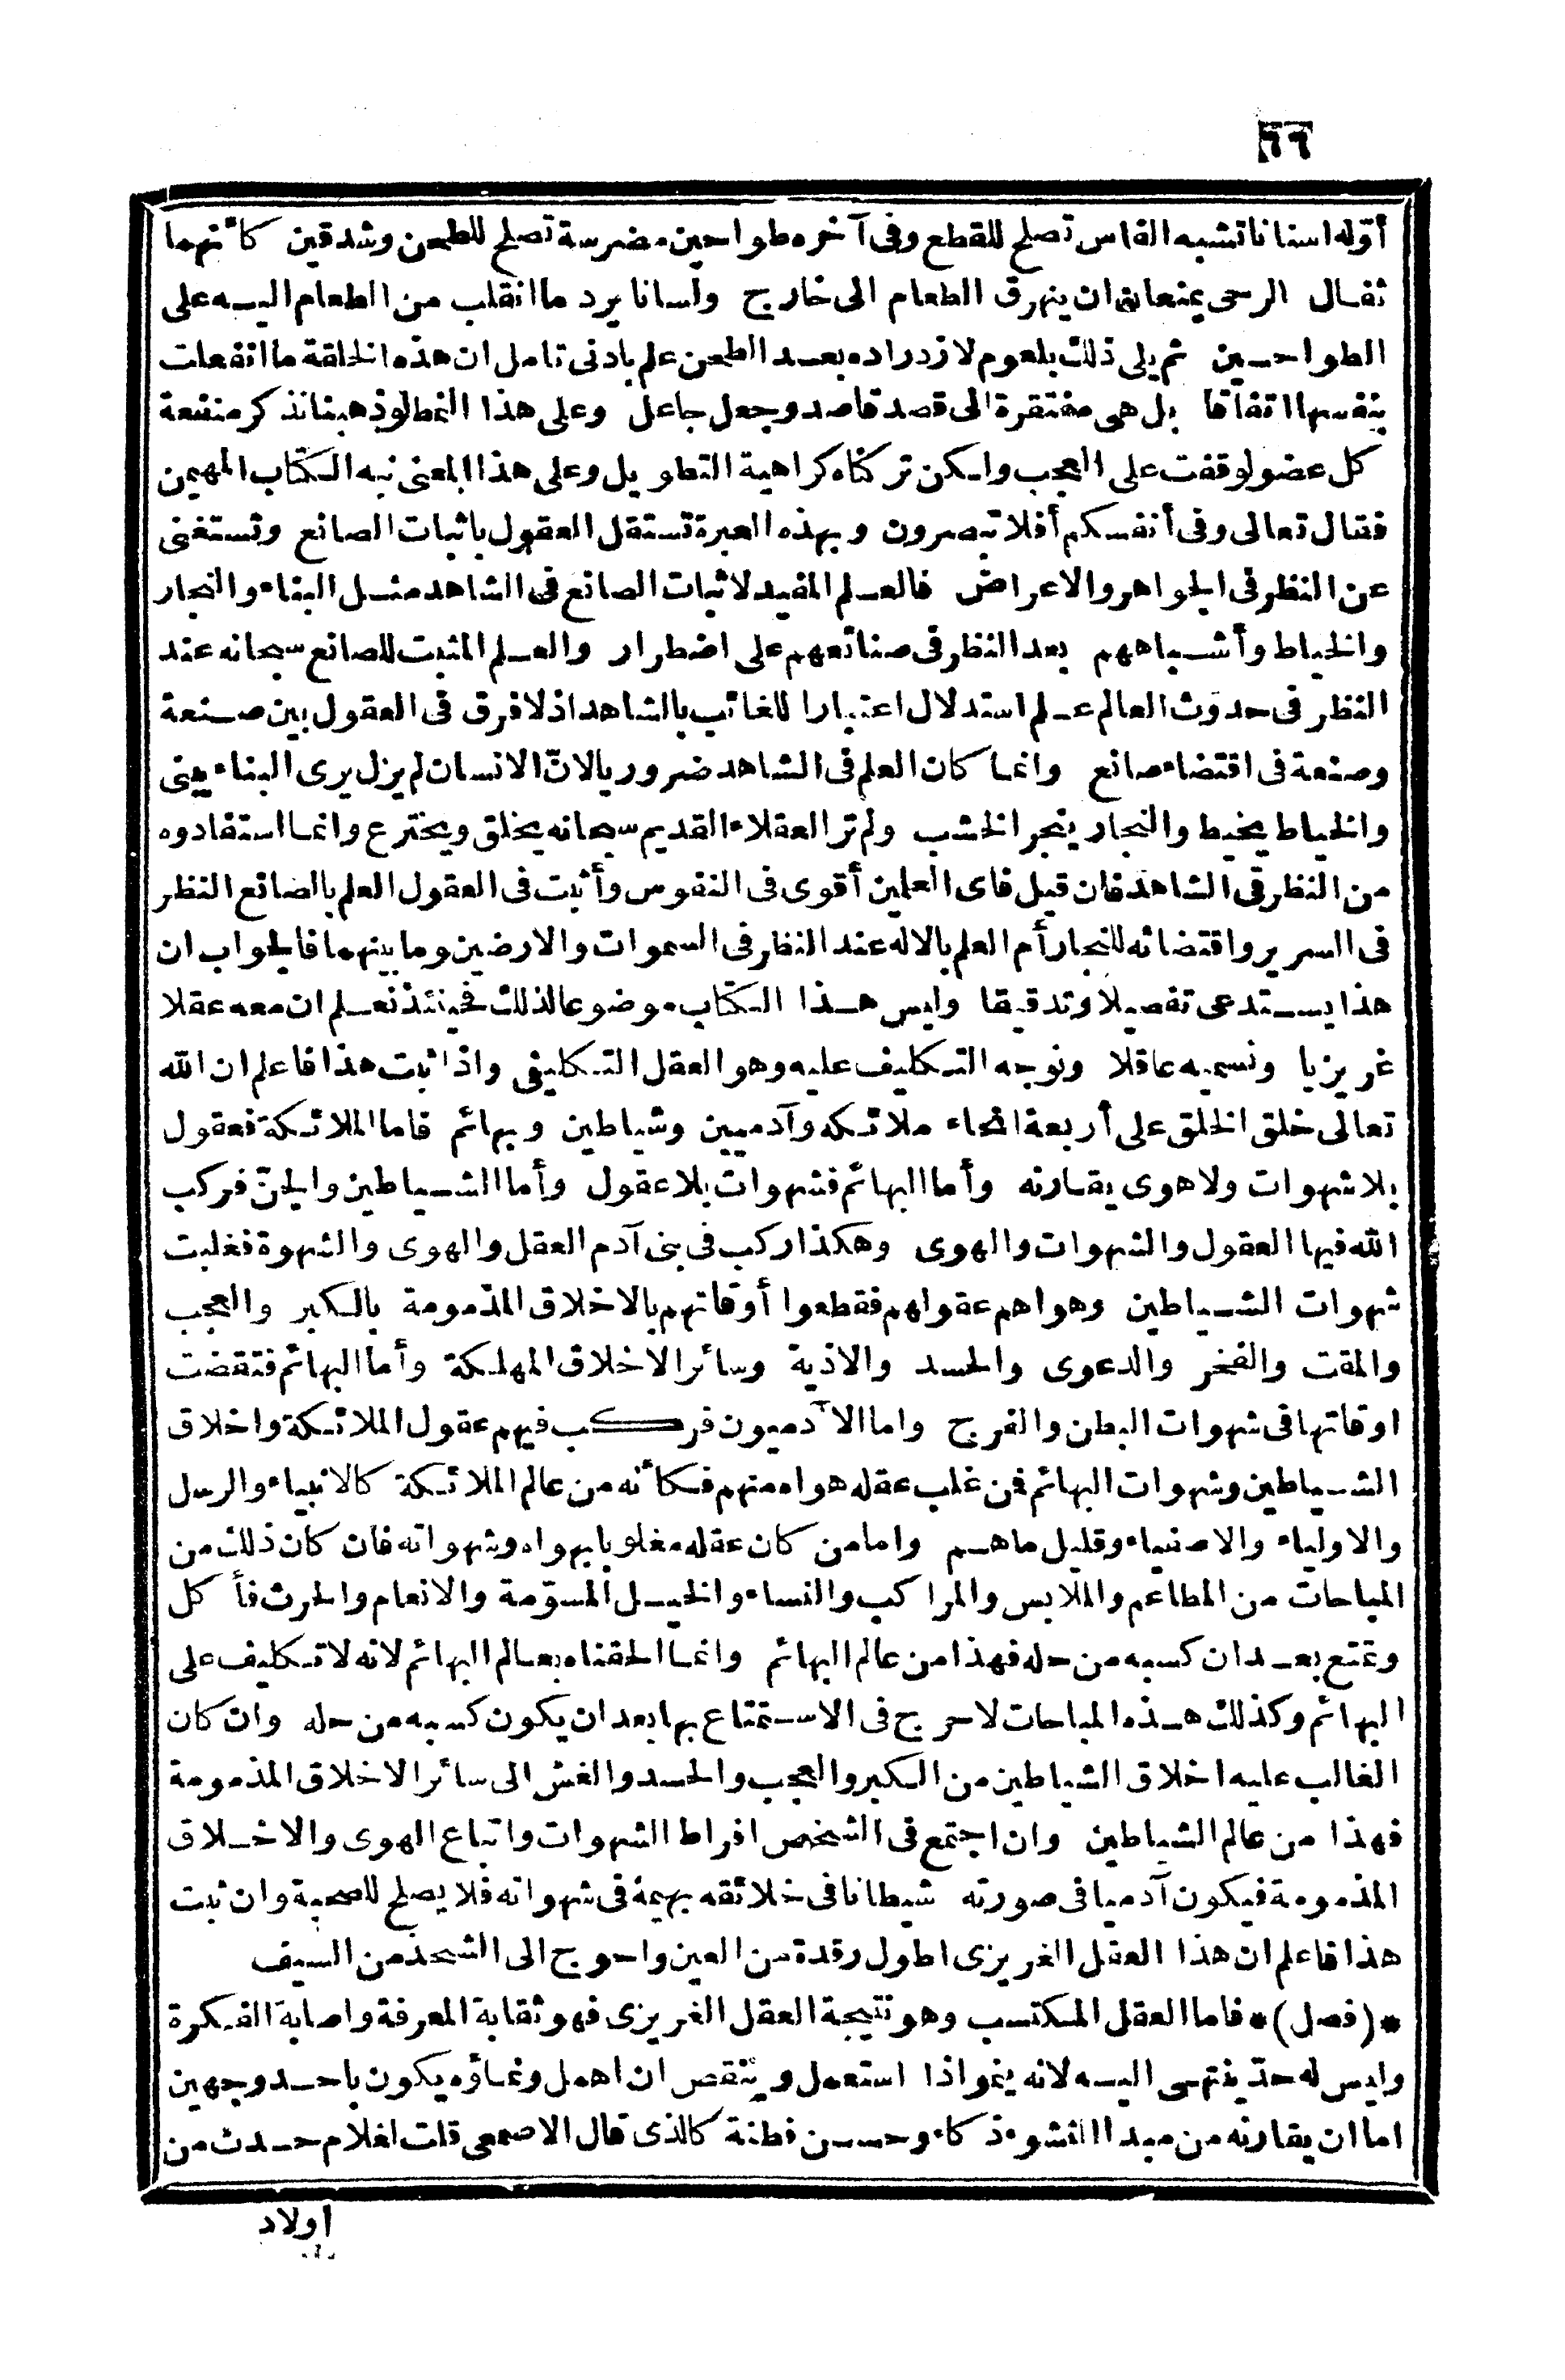 ٦٦
أوّله اسنانا تشبه الفاس تصلح للقطع وفى آخره طواحين مضرسة تصلح للطحن وشدقين كأنهما
ثفال الرحى يمنعانه ان ينهرق الطعام الى خارج ولسانا يرد ما انقلب من الطعام اليه على
الطواحين ثم يلى ذلك بلعوم لازدراده بعد الطحن علم بادنى تامل ان هذه الخلقة ما انفعلت
بنفسها اتفاقا بل هى مفتقرة الى قصد قاصد وجعل جاعل وعلى هذا النمط لو ذهبنا نذكر منفعة
كل عضو لوقفت على العجب ولكن تركناه كراهية التطويل وعلى هذا المعنى نبه الكتاب المهيمن
فقال تعالى وفى أنفسكم أفلا تبصرون وبهذه العبرة تستقل العقول باثبات الصانع وتستغنى
عن النظر فى الجواهر والاعراض فالعلم المفيد لاثبات الصانع فى الشاهد مثل البناء والنجار
والخياط وأشباههم بعد النظر فى صنائعهم على اضطرار والعلم المثبت للصانع سبحانه عند
النظر فى حدوث العالم علم استدلال اعتبارا للغائب بالشاهد اذ لا فرق فى العقول بين صنعة
وصنعة فى اقتضاء صانع وانما كان العلم فى الشاهد ضروريا لانّ الانسان لم يزل يرى البناء يبنى
والخياط يخيط والنجار ينجر الخشب ولم تر العقلاء القديم سبحانه يخلق ويخترع وانما استفادوه
من النظر فى الشاهد فان قيل فاى العلمين أقوى فى النفوس وأثبت فى العقول العلم بالصانع النظر
فى السرير واقتضائه للنجار أم العلم بالاله عند النظر فى السموات والارضين وما بينهما فالجواب ان
هذا يستدعى تفصيلا وتدقيقا وليس هذا الكتاب موضوعا لذلك فحينئذ نعلم ان معه عقلا
غريزيا ونسميه عاقلا ونوجه التكليف عليه وهو العقل التكليفى واذا ثبت هذا فاعلم ان الله
تعالى خلق الخلق على أربعة انحاء ملائكه وآدميين وشياطين وبهائم فاما الملائكة فعقول
بلا شهوات ولا هوى يقارنه وأما البهائم فشهوات بلا عقول وأما الشياطين والجنّ فركب
الله فيها العقول والشهوات والهوى وهكذا ركب فى بنى آدم العقل والهوى والشهوة فغلبت
شهوات الشياطين وهواهم عقولهم فقطعوا أوقاتهم بالاخلاق المذمومة بالكبر والعجب
والمقت والفخر والدعوى والحسد والاذية وسائر الاخلاق المهلكة وأما البهائم فتقضت
اوقاتها فى شهوات البطن والفرج واما الآدميون فركب فيهم عقول الملائكة واخلاق
الشياطين وشهوات البهائم فمن غلب عقله هواه منهم فكأنه من عالم الملائكة كالانبياء والرسل
والاولياء والاصفياء وقليل ماهم واما من كان عقله مغلوبا بهواه وشهواته فان كان ذلك من
المباحات من المطاعم والملابس والمراكب والنساء والخيل المسوّمة والانعام والحرث فأكل
وتمتع بعد ان كسبه من حله فهذا من عالم البهائم وانما الحقناه بعالم البهائم لانه لا تكليف على
البهائم وكذلك هذه المباحات لا حرج فى الاستمتاع بها بعد ان يكون كسبه من حله وان كان
الغالب عليه اخلاق الشياطين من الكبر والعجب والحسد والغش الى سائر الاخلاق المذمومة
فهذا من عالم الشياطين وان اجتمع فى الشخص افراط الشهوات واتباع الهوى والاخلاق
المذمومة فيكون آدميا فى صورته شيطانا فى خلائقه بهيمة فى شهواته فلا يصلح للصحبة وان ثبت
هذا فاعلم ان هذا العقل الغريزى اطول رقدة من العين واحوج الى الشحذ من السيف
*(فصل)* فاما العقل المكتسب وهو نتيجة العقل الغريزى فهو ثقابة المعرفة واصابة الفكرة
وليس له حدّ ينتهى اليه لانه ينمو اذا استعمل وينقص ان اهمل ونماؤه يكون باحد وجهين
اما ان يقارنه من مبدا النشوء ذكاء وحسن فطنة كالذى قال الاصمعى قلت لغلام حدث من
اولاد